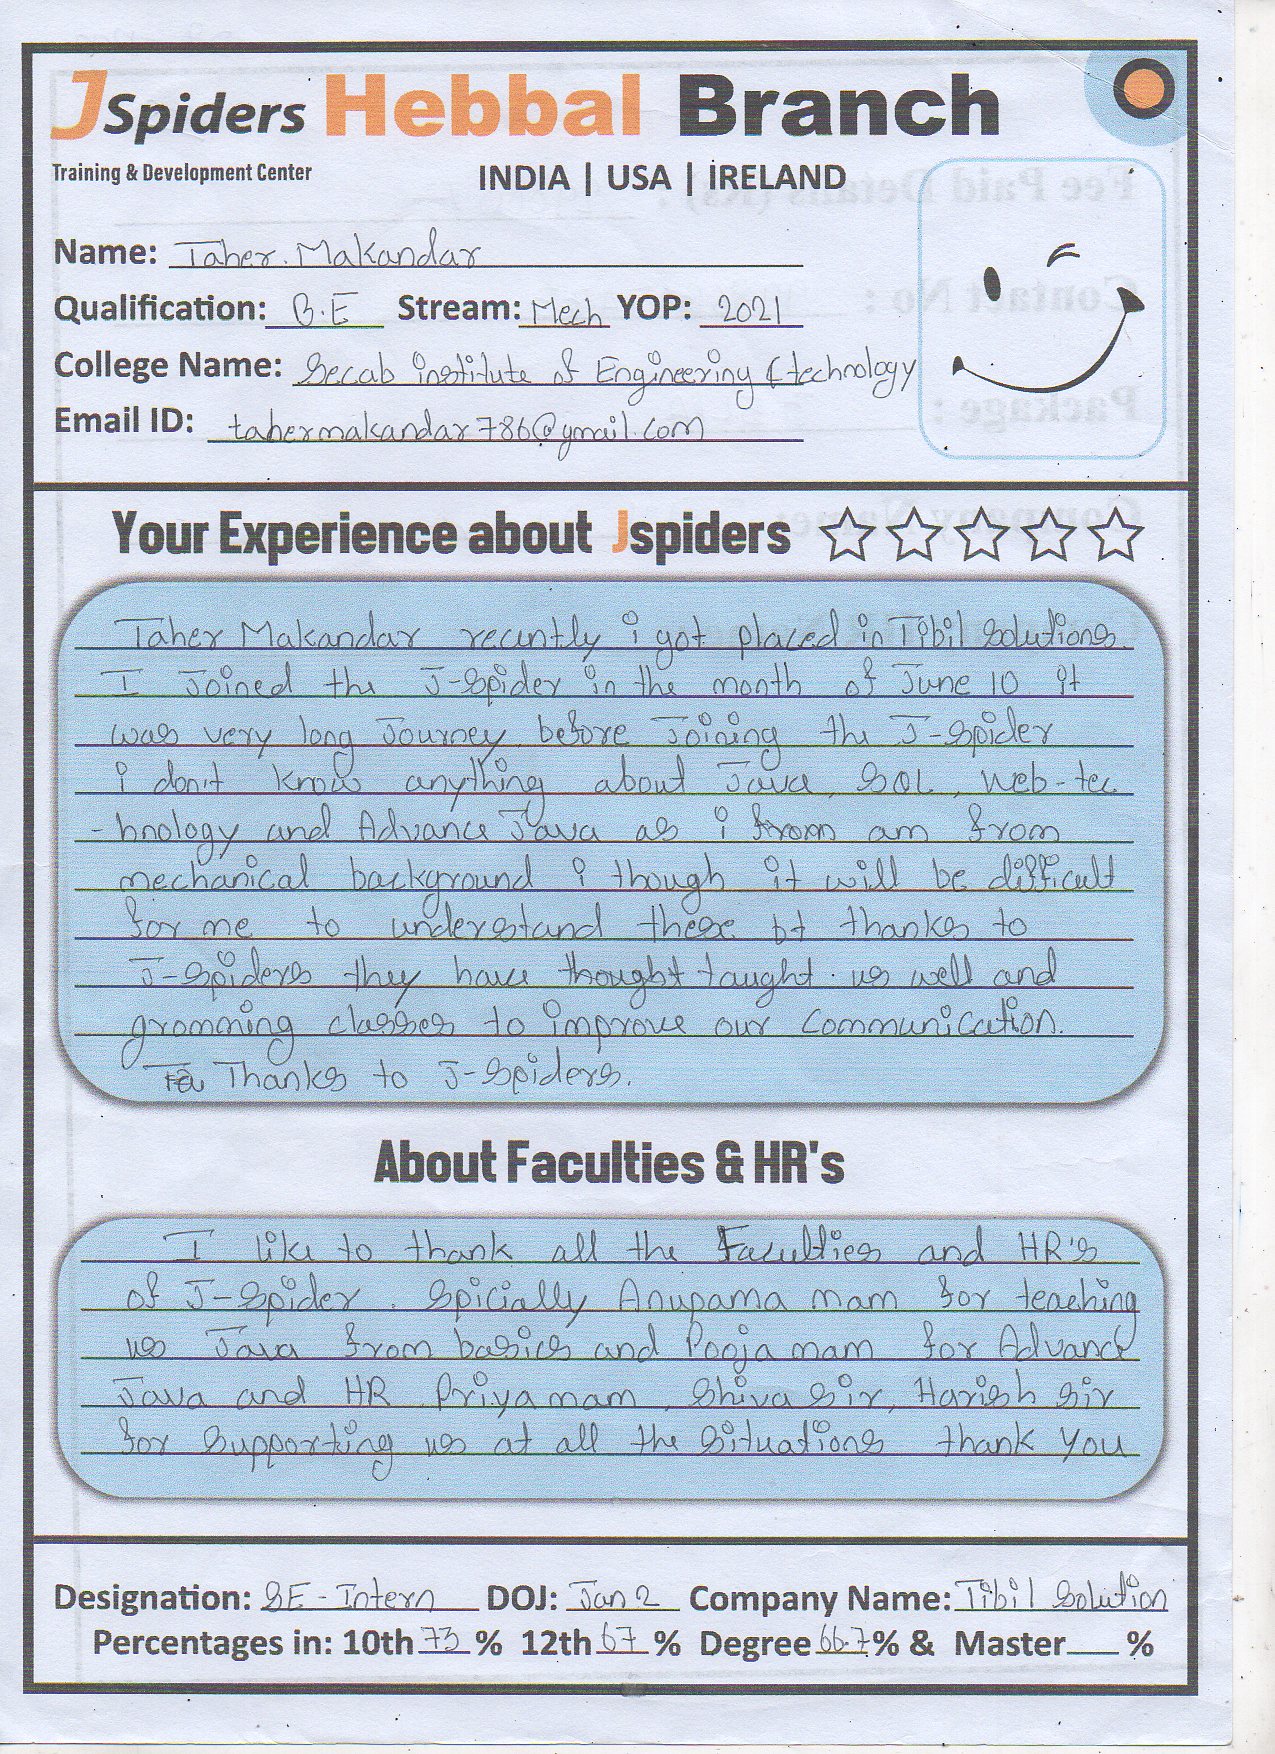 JSpiders Hebbal Branch
Training & Development Center
INDIA | USA | IRELAND
Name: Taher. Makandar
Qualification: B.E Stream: Mech YOP: 2021
College Name: Secab institute of Engineering & technology
Email ID: tahermakandar786@gmail.com
Your Experience about Jspiders
Taher Makandar recently i got placed in Tibil Solutions.
I Joined the J-Spider in the month of June 10 it
was very long Journey before Joining the J-Spider
i don't know anything about Java, SQL, Web-tec
-hnology and Advance Java as i from am from
mechanical background i though it will be difficult
for me to understand these bt thanks to
J-Spiders they have thought taught us well and
gromming classes to improve our Communication.
Thanks to J-Spiders.
About Faculties & HR's
I like to thank all the Faculties and HR's
of J-Spider. Spicially Anupama mam for teaching
us Java from basics and Pooja mam for Advance
Java and HR Priya mam, Shiva Sir, Harish Sir
for Supporting us at all the Situations thank you
Designation: SE-Intern DOJ: Jan 2 Company Name: Tibil Solution
Percentages in: 10th 73 % 12th 67 % Degree 66.7 % & Master %